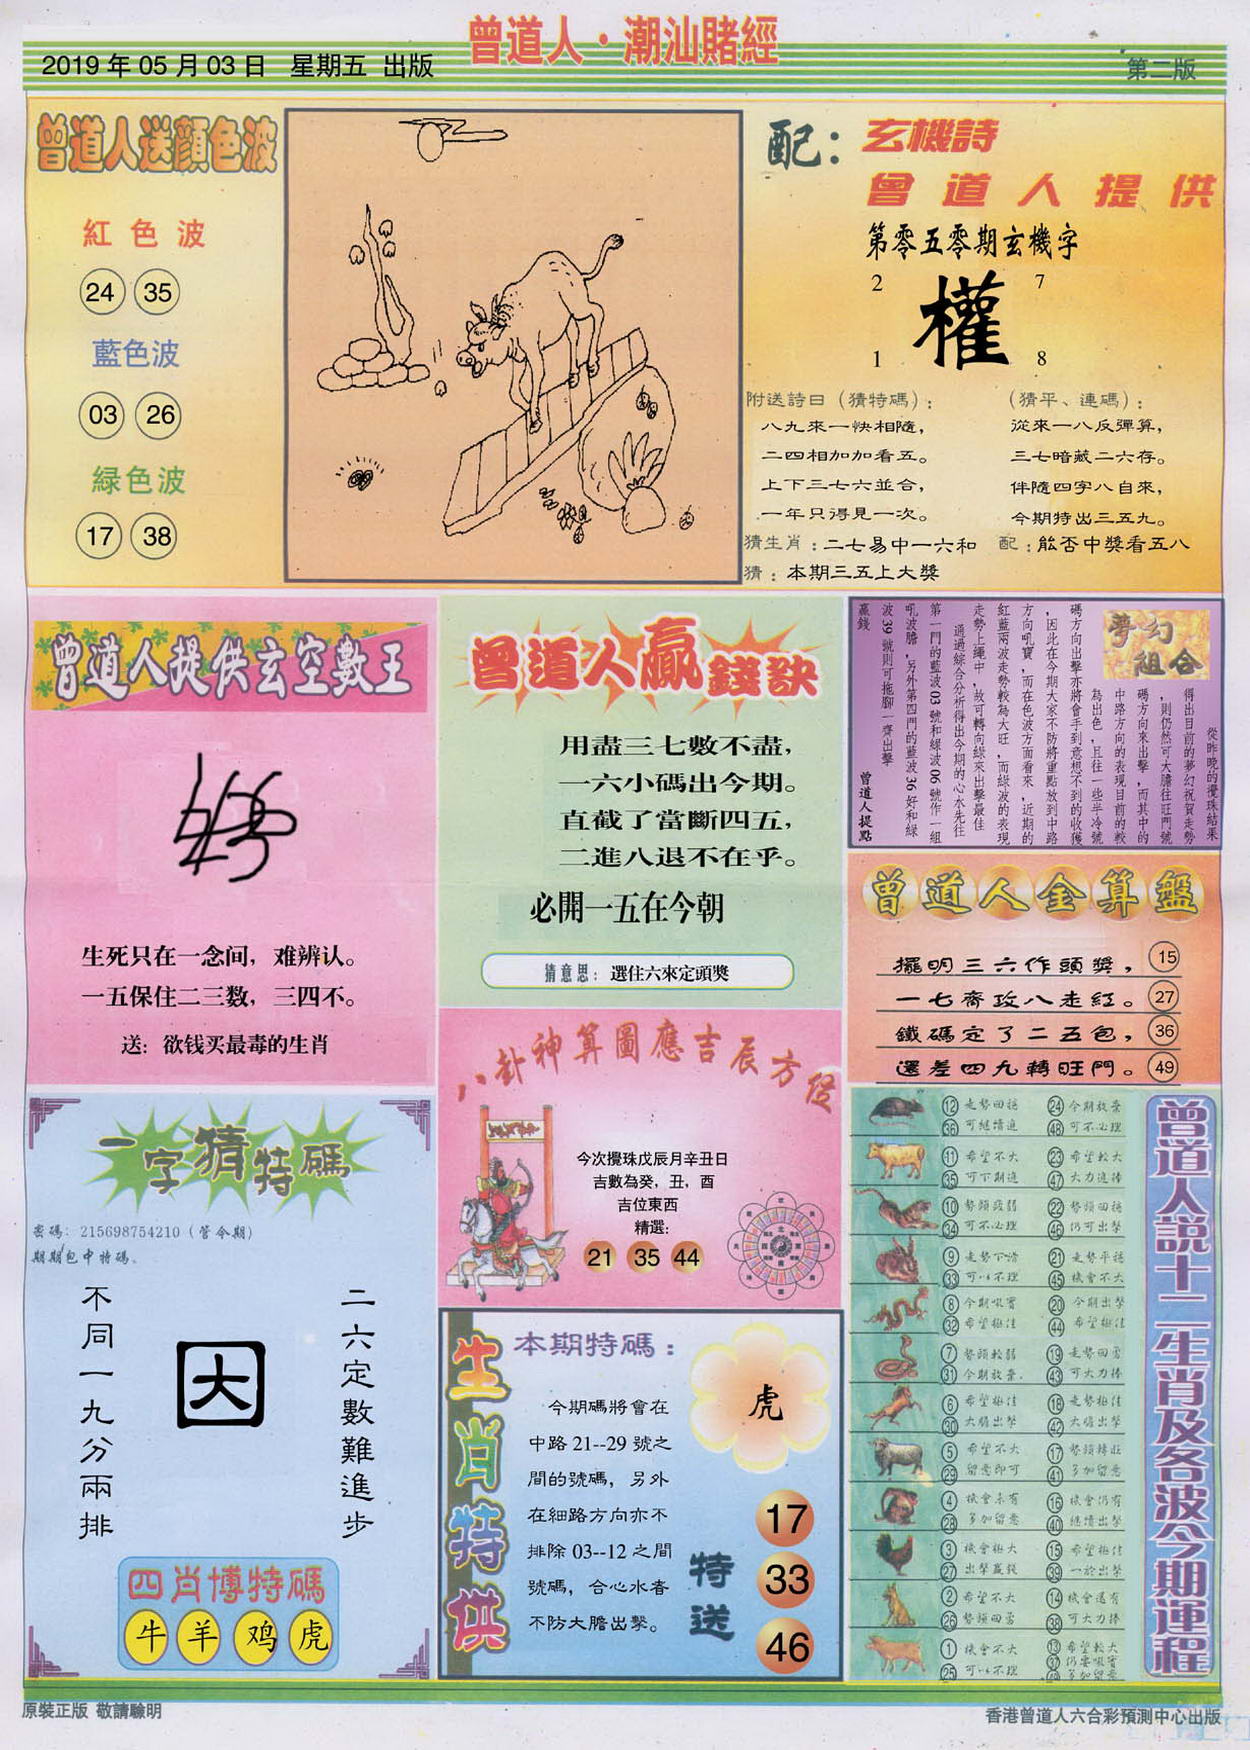 曾道人·潮汕賭經
2019年05月03日 星期五 出版
第二版
曾道人送顔色波
紅色波
24 35
藍色波
03 26
緑色波
17 38
配：玄機詩
曾道人提供
第零五零期玄機字
2 7
權
1 8
附送詩曰（猜特碼）：
八九來一快相隨，
二四相加加看五。
上下三七六並合，
一年只得見一次。
（猜平、連碼）：
從來一八反彈算，
三七暗藏二六存。
伴隨四字八自來，
今期特出三五九。
猜生肖：二七易中一六和 配：能否中獎看五八
猜：本期三五上大獎
曾道人提供玄空數王
生死只在一念间，难辨认。
一五保住二三数，三四不。
送：欲钱买最毒的生肖
曾道人贏錢訣
用盡三七數不盡，
一六小碼出今期。
直截了當斷四五，
二進八退不在乎。
必開一五在今朝
猜意思：選住六來定頭獎
夢幻
組合
從昨晚的攪珠結果
得出目前的夢幻祝賀走勢
，則仍然可大膽往旺門號
碼方向來出擊，而其中的
中路方向的表現目前的較
為出色，且往一些半冷號
碼方向出擊亦將會手到意想不到的收獲
，因此在今期大家不防將重點放到中路
方向吼寶，而在色波方面看來，近期的
紅藍兩波走勢較為大旺，而綠波的表現
走勢上繩中，故可轉向綠來出擊最佳
通過綜合分析得出今期的心水先往
第一門的藍波03號和綠波06號作一組
吼波膽，另外第四門的藍波36好和綠
波39號則可拖腳一齊出擊
贏錢
曾道人提點
曾道人金算盤
擺明三六作頭獎， 15
一七齊攻八走紅。 27
鐵碼定了二五包， 36
還差四九轉旺門。 49
八卦神算圖應吉辰方位
今次攪珠戊辰月辛丑日
吉數為癸，丑，酉
吉位東西
精選:
21 35 44
一字猜特碼
密碼：215698754210（管今期）
期期包中特碼。
二六定數難進步
囚
不同一九分兩排
四肖博特碼
牛 羊 鸡 虎
生肖特供
本期特碼：
今期碼將會在
中路21--29號之
間的號碼，另外
在細路方向亦不
排除03--12之間
號碼，合心水者
不防大膽出擊。
虎
特送
17
33
46
曾道人説十二生肖及各波今期運程
12 走勢回穩 24 今期放棄
36 可繼續追 48 可不必理
11 希望不大 23 希望較大
35 可下期追 47 大力追捧
10 勢頭疲弱 22 勢頭回穩
34 可不必理 46 仍可出擊
9 走勢下滑 21 走勢平穩
33 可以不理 45 機會不大
8 今期吸寶 20 今期出擊
32 希望極佳 44 希望極佳
7 勢頭較弱 19 走勢回勇
31 今期放棄. 43 可大力捧
6 希望極佳 18 走勢極佳
30 大膽出擊 42 大膽出擊
5 希望不大 17 勢頭轉旺
29 留意即可 41 多加留意
4 機會未有 16 機會仍有
28 多加留意 40 繼續出擊
3 機會極大 15 希望極佳
27 出擊贏錢 39 一於出擊
2 希望不大 14 機會還有
26 勢頭回勇 38 可大力捧
1 機會不大 13 希望較大
25 可以不理 37 仍要吸寶
49 多加留意
原裝正版 敬請驗明
香港曾道人六合彩預測中心出版